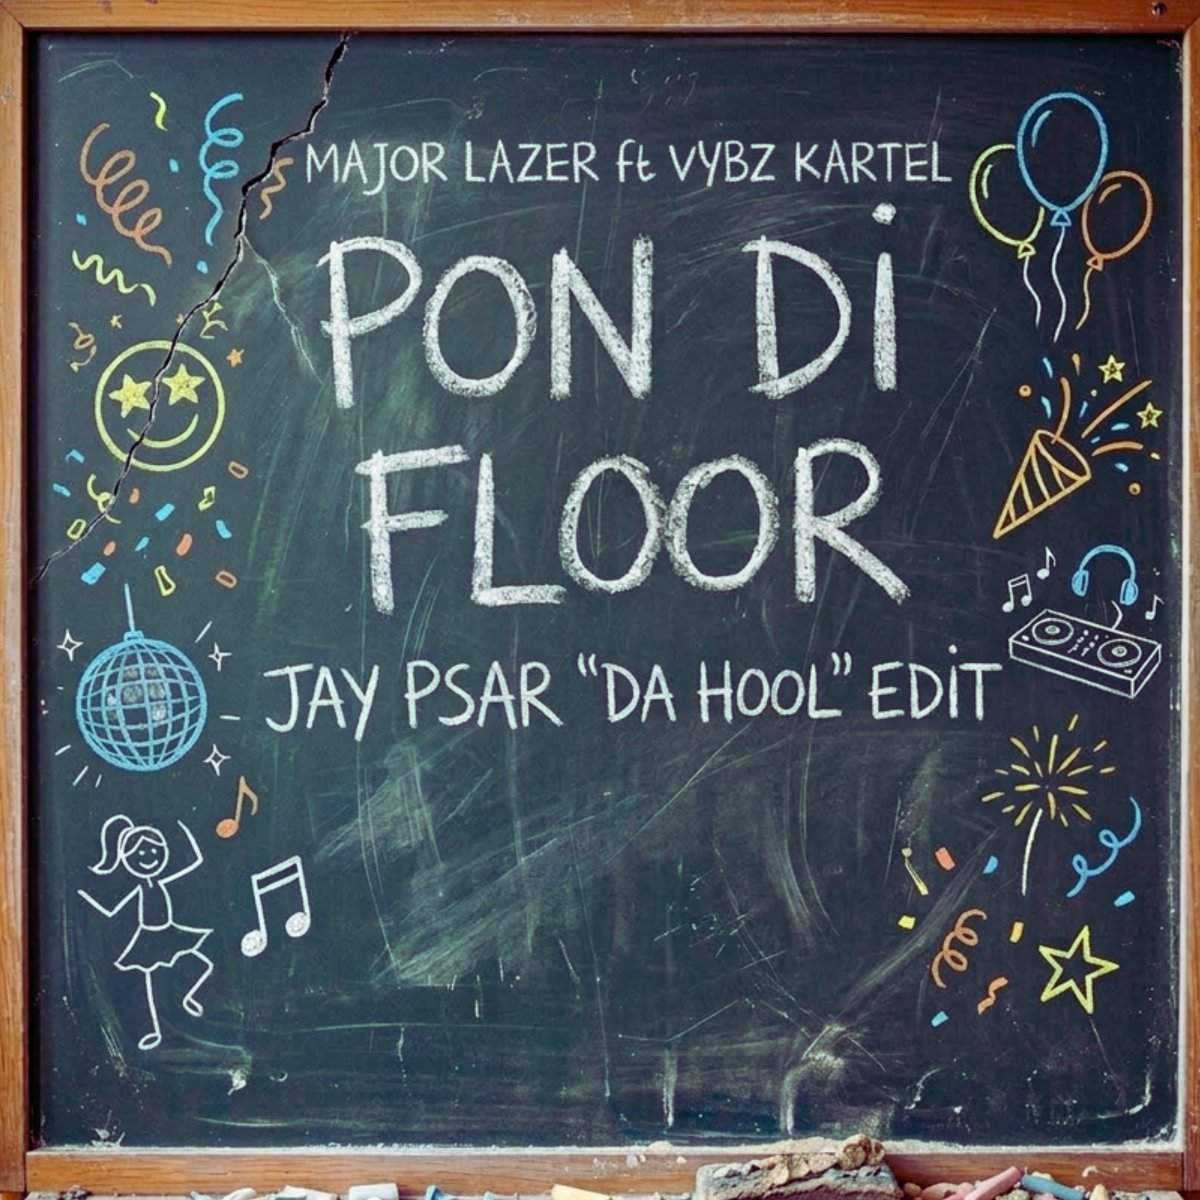 MAJOR LAZER ft VYBZ KARTEL
PON Di
FLOOR
JAY PSAR “DA HOOL” EDiT